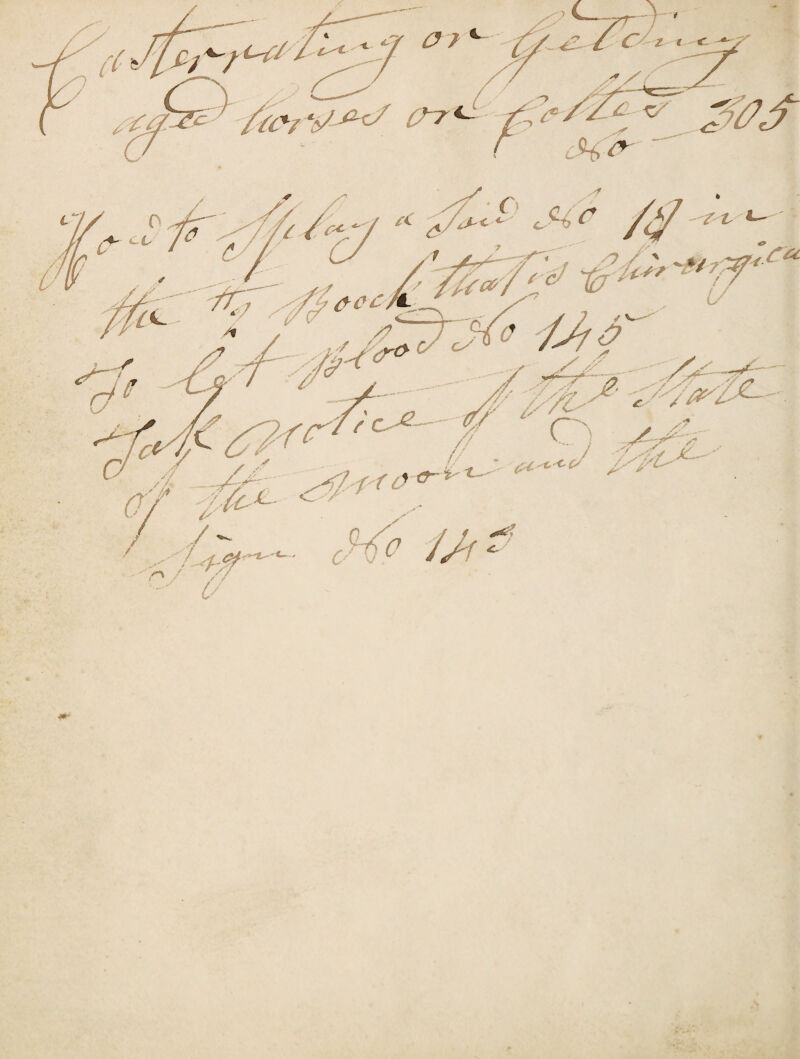 Casterrating or Gelding
aged horses or Coltes 305
No
How to Splay a Sow No 18 in
the #2 Boock that is Chirurgica
To let Blood No 145
Take Notice of the State
of the Moon and the
Sign No 143